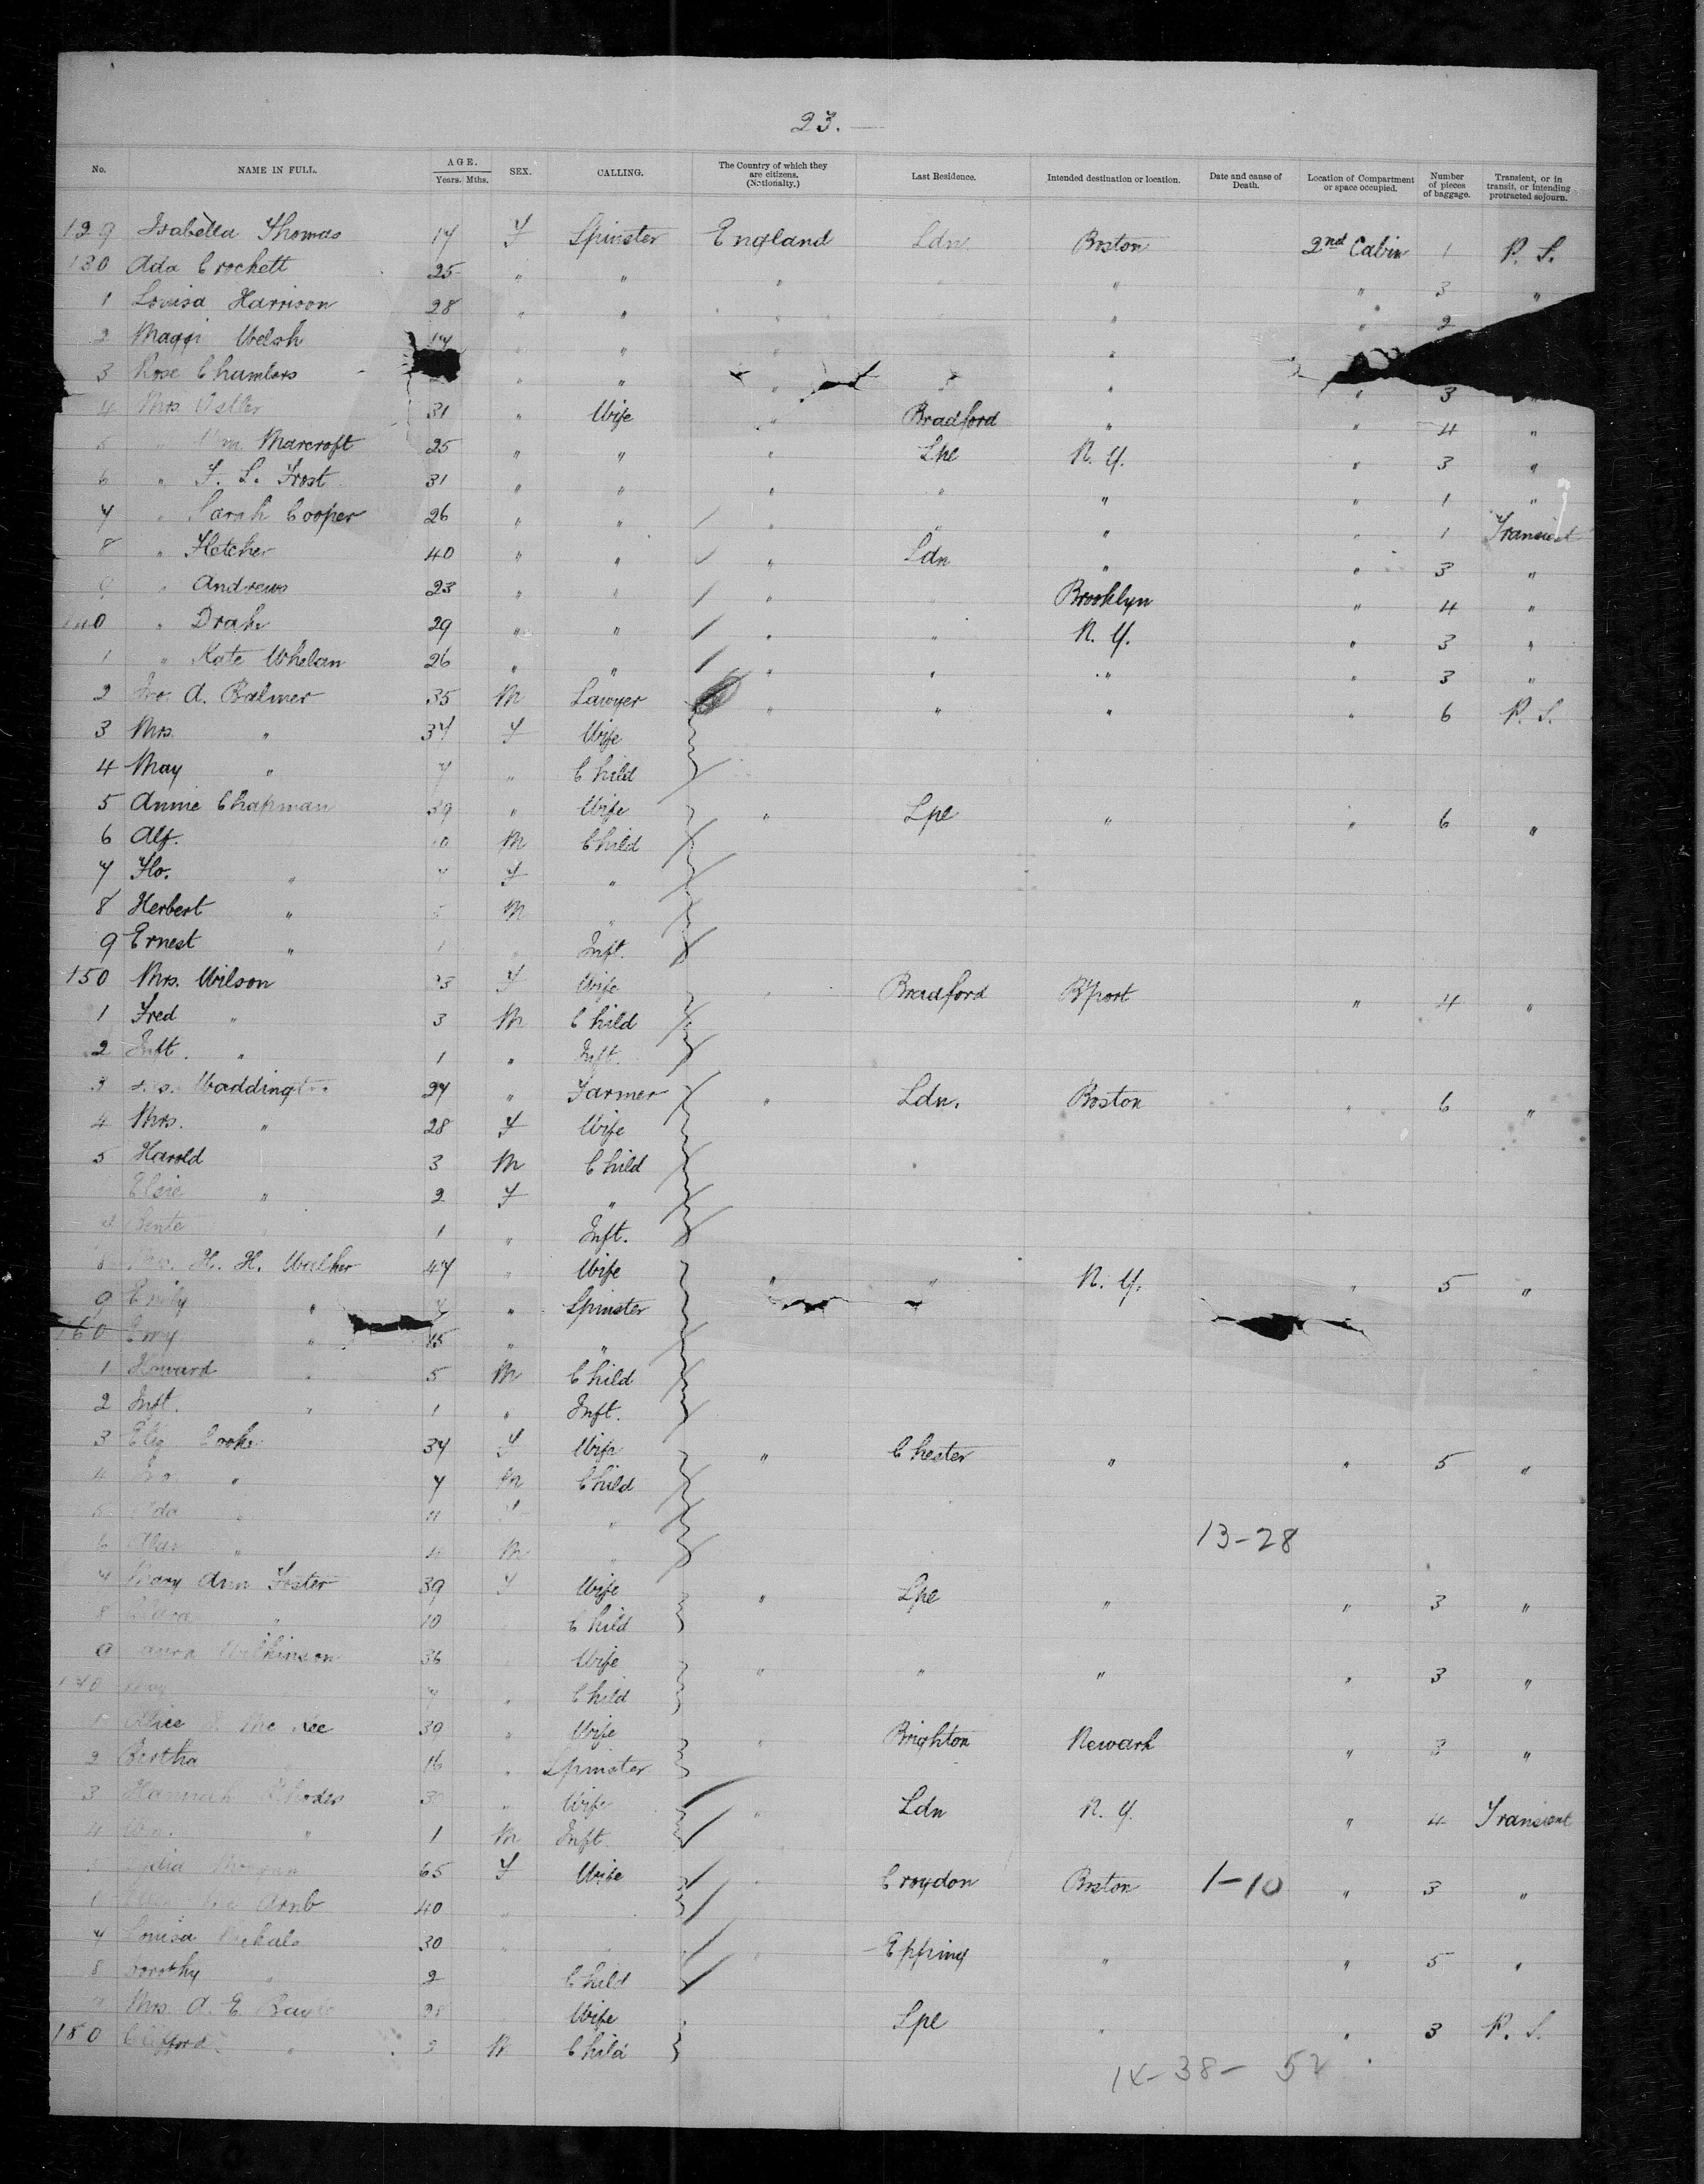 23. —
No. NAME IN FULL. AGE. Years. Mths. SEX. CALLING. The Country of which they are citizens. (Notionality.) Last Residence. Intended destination or location. Date and cause of Death. Location of Compartment or space occupied. Number of pieces of baggage. Transient, or in transit, or intending protracted sojourn.
129 Isabella Thomas 17 F Spinster England Ldn Boston 2nd Cabin 1 P. S.
130 Ada Crockett 25 " " " " " 3 "
1 Louisa Harrison 28 " " " " " 2
2 Maggi Welsh 17 " " " "
3 Rose Chambers " " " " " 3
4 Mrs. 31 " Wife " Bradford " " 4 "
5 " Wm. Marcroft 25 " " " Lpl N. Y. " 3 "
6 " F. L. Frost 31 " " " " " " 1 "
7 " Sarah Cooper 26 " " " " " " 1 Transient
8 " Fletcher 40 " " " Ldn " " 3 "
9 " Andrews 23 " " " Brooklyn " 4 "
140 " Drake 29 " " " " N. Y. " 3 "
1 " Kate Whelan 26 " " " " " " 3 "
2 Jno. A. Balmer 35 M Lawyer " " " " 6 P. S.
3 Mrs. " 37 F Wife
4 May " 7 " Child
5 Annie Chapman 39 " Wife " Lpl " " 6 "
6 Alf. M Child
7 Flo. " 7 F "
8 Herbert " 5 M "
9 Ernest " 1 Inft.
150 Mrs. Wilson F Wife Bradford B'port " 4 "
1 Fred " 3 M Child
2 Inft. " 1 " Inft.
3 Waddington 27 " Farmer " Ldn. Boston " 6 "
4 Mrs. " 28 F Wife
5 Harold 3 M Child
Elsie " 2 F "
1 " Inft.
8 Mrs. H. H. Walker 47 " Wife " " N. Y. " 5 "
9 Emily " " Spinster
160 " 15 " "
1 Howard " 5 M Child
2 Inft. " 1 " Inft.
3 Eliz Cooke 37 F Wife " Chester " " 5 "
4 Jno. " 7 M Child
5 Ada " F "
6 " 4 M "
7 Mary Ann Foster 39 F Wife " Lpl " " 3 "
8 Clara " 10 Child
9 Wilkinson 36 Wife " " " " 3 "
170 May 7 " Child
1 Alice Mc Kee 39 " Wife " Brighton Newark " 3 "
2 Bertha 16 " Spinster
3 Hannah Rhodes 30 " Wife " Ldn N. Y. " 4 Transient
4 Wm. " 1 M Inft.
5 Lydia Morgan 65 F Wife Croydon Boston 1-10 " 3 "
40 "
7 Louisa 30 " " Epping " " 5 "
8 Dorothy " 2 Child
Mrs. A. E. 28 Wife Lpl " " 3 P. S.
180 Clifford " M Child
13-28
14-38- 52